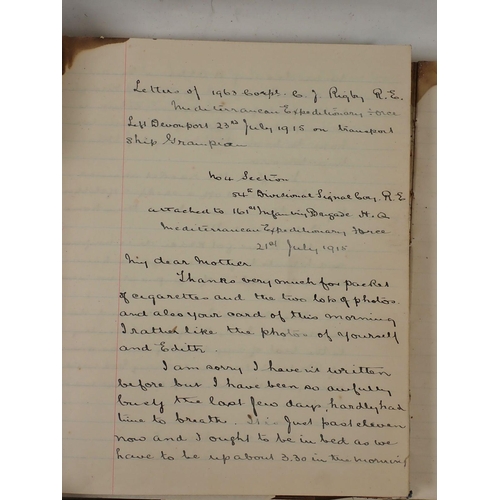 Letters of 1963 Corpl. C. J. Rigby R.E.
Mediterranean Expeditionary Force
Left Devonport 23rd July 1915 on transport
ship Grampian
No 4 Section
54th Divisional Signal Coy. R.E
attached to 161st Infantry Brigade H.Q
Mediterranean Expeditionary Force
21st July 1915
My dear Mother
Thanks very much for packet
of cigarettes and the two lots of photos.
and also your card of this morning
I rather like the photos of yourself
and Edith.
I am sorry I haven't written
before but I have been so awfully
busy the last few days, hardly had
time to breath. It is just past eleven
now and I ought to be in bed as we
have to be up about 3.30 in the morning